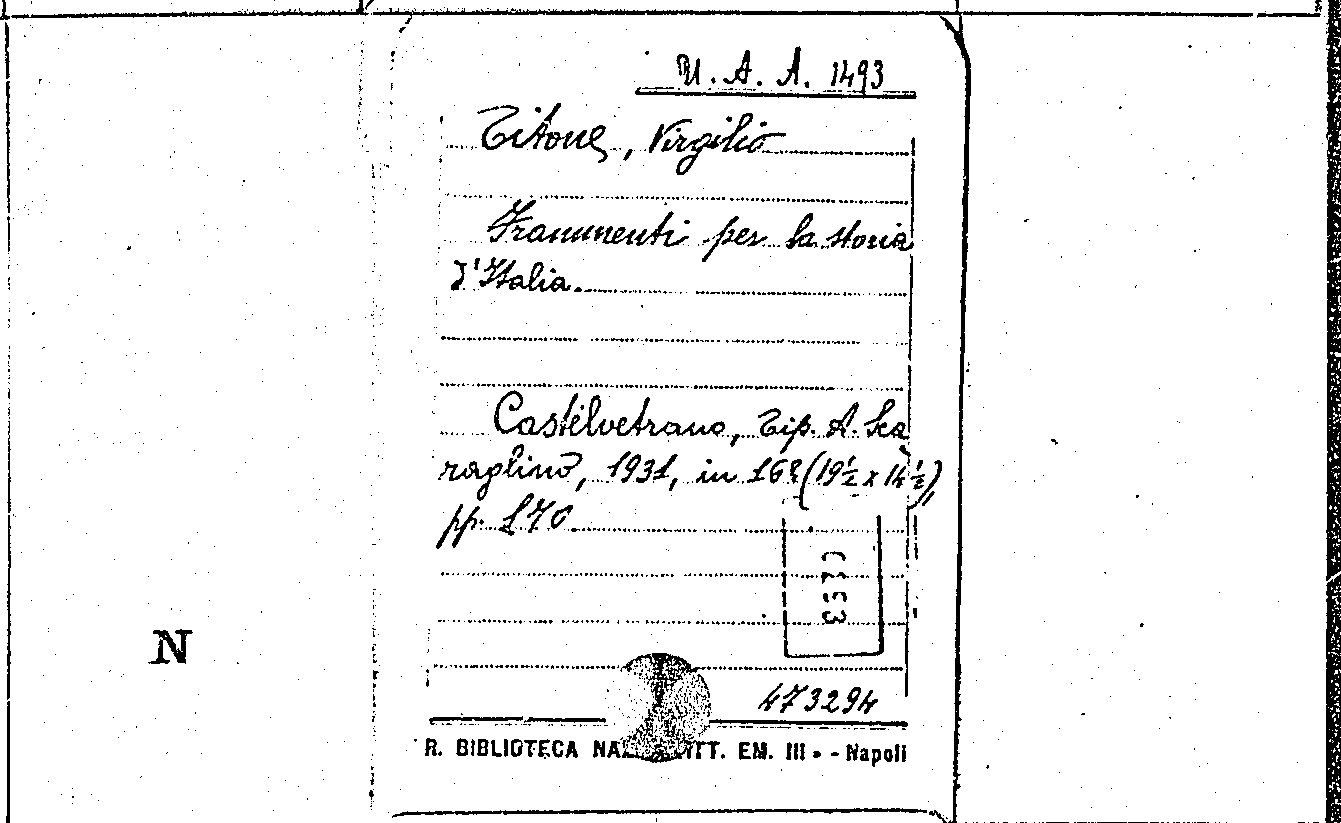 U. A. A. 1493
Titone, Virgilio
Frammenti per la storia
d'Italia.
Castelvetrano, Tip. A. Sca
raglino, 1931, in 16º (19½ x 14½),
pp. 170
N
473294
R. BIBLIOTECA VITT. EM. III - Napoli